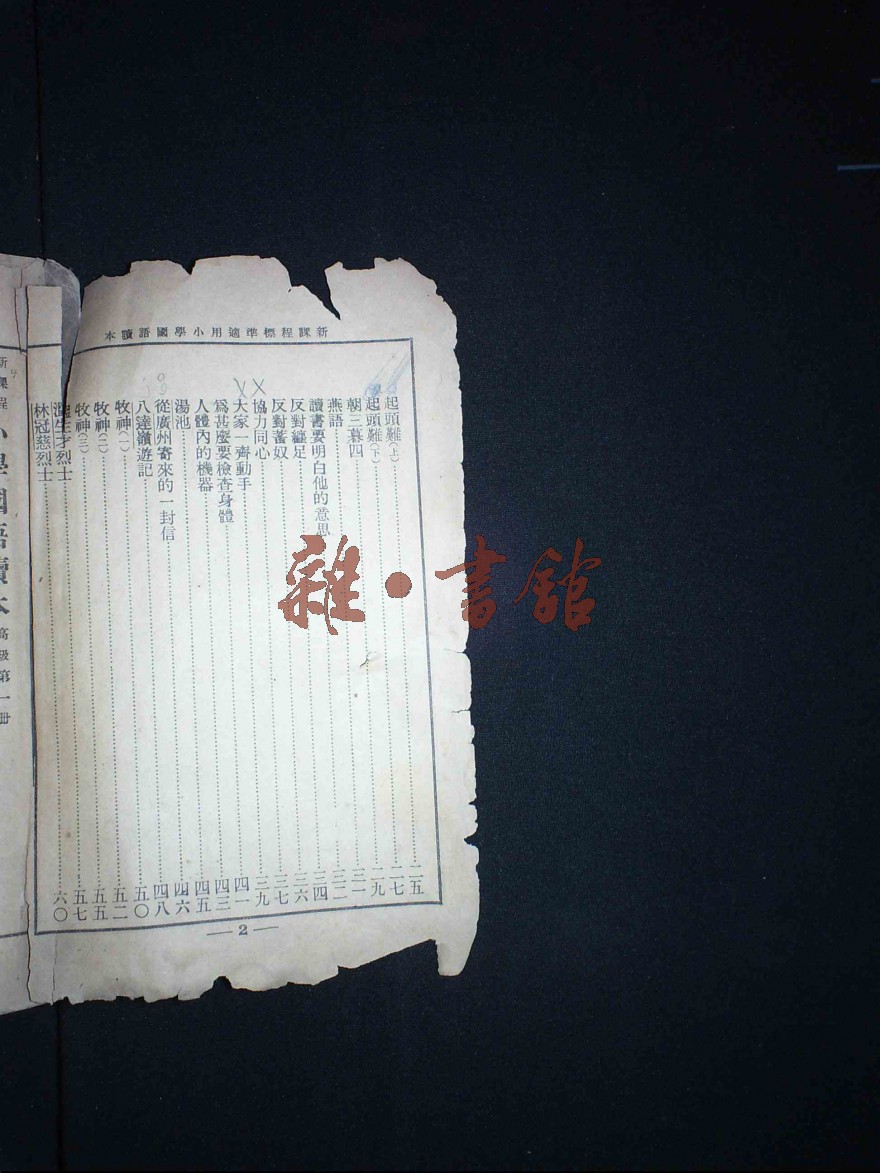 新課程標準適用小學國語讀本
起頭難(上) 二五
起頭難(下) 二七
朝三暮四 二九
燕語 三一
讀書要明白他的意思 三二
反對纏足 三四
反對蓄奴 三六
協力同心 三七
大家一齊動手 三九
爲甚麼要檢查身體 四一
人體內的機器 四三
湯池 四五
從廣州寄來的一封信 四六
八達嶺遊記 四八
牧神(一) 五〇
牧神(二) 五二
牧神(三) 五五
溫生才烈士 五七
林冠慈烈士 六〇
— 2 —
新課程
小學國語讀本
高級第一冊
雜·書館